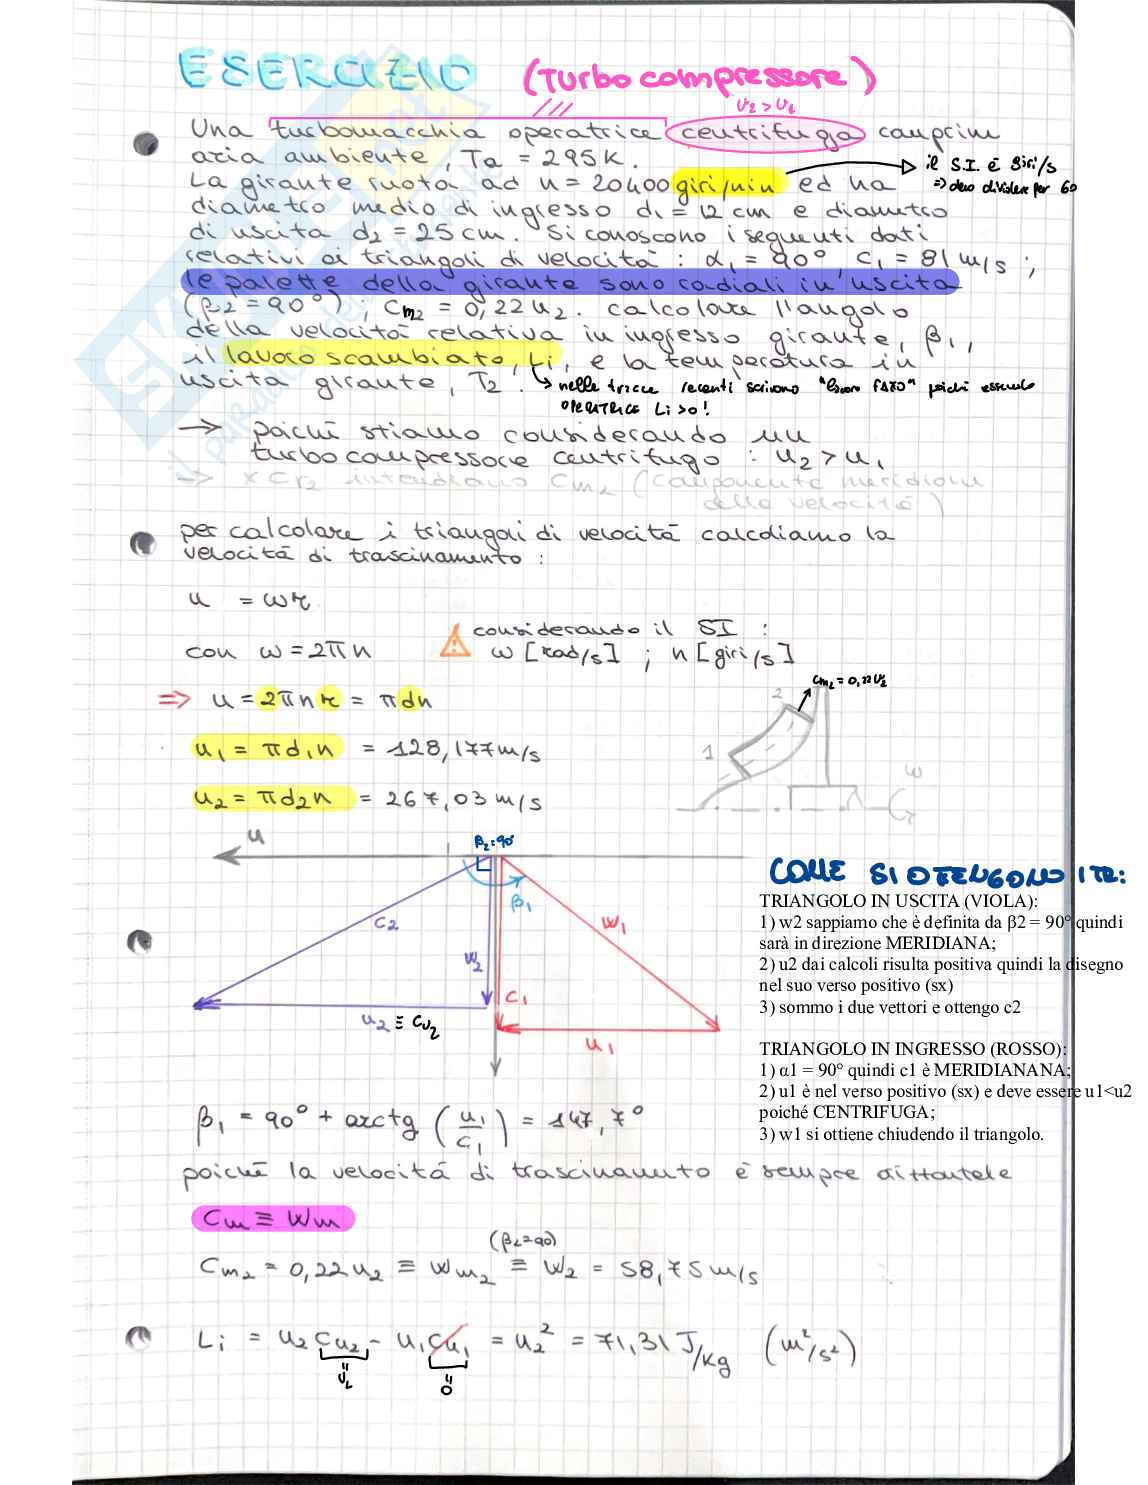 ESERCIZIO (Turbocompressore)
U₂ > U₁
Una turbomacchia operatrice centrifuga comprim
aria ambiente, Ta = 295K.
il S.I. è giri/s
⇒ devo dividere per 60
La girante ruota ad n = 20400 giri/min ed ha
diametro medio di ingresso d₁ = 12 cm e diametro
di uscita d₂ = 25 cm. Si conoscono i seguenti dati
relativi ai triangoli di velocità : α₁ = 90°, c₁ = 81 m/s ;
le palette della girante sono radiali in uscita
(β₂ = 90°) ; Cm₂ = 0,22 u₂. calcolare l'angolo
della velocità relativa in ingresso girante, β₁,
il lavoro scambiato, Li, e la temperatura in
uscita girante, T₂.
nelle tracce recenti scrivono "lavoro FATTO" poiché essendo
OPERATRICE Li>0!
→ poiché stiamo considerando un
turbocompressore centrifugo : u₂ > u₁
→ x Cr₂ intendiamo Cm₂ (componente meridiana
della velocità)
per calcolare i triangoli di velocità calcoliamo la
velocità di trascinamento :
u = ωr
con ω = 2πn
considerando il SI :
ω [rad/s] ; n [giri/s]
⇒ u = 2πnr = πdn
Cm₂ = 0,22 U₂
2
1
ω
u₁ = πd₁n = 128,177 m/s
u₂ = πd₂n = 267,03 m/s
u
β₂ = 90°
β₁
c₂
w₂
w₁
c₁
u₂ ≡ Cu₂
u₁
COME SI OTENGONO I TR:
TRIANGOLO IN USCITA (VIOLA):
1) w2 sappiamo che è definita da β2 = 90° quindi
sarà in direzione MERIDIANA;
2) u2 dai calcoli risulta positiva quindi la disegno
nel suo verso positivo (sx)
3) sommo i due vettori e ottengo c2
TRIANGOLO IN INGRESSO (ROSSO):
1) α1 = 90° quindi c1 è MERIDIANANA;
2) u1 è nel verso positivo (sx) e deve essere u1<u2
poiché CENTRIFUGA;
3) w1 si ottiene chiudendo il triangolo.
β₁ = 90° + arctg (u₁/c₁) = 147,7°
poiché la velocità di trascinamento è sempre
Cm ≡ Wm
(β₂=90)
Cm₂ = 0,22 u₂ ≡ Wm₂ ≡ W₂ = 58,75 m/s
Li = u₂ Cu₂ - u₁ Cu₁ = u₂² = 71,31 J/kg (m²/s²)
U₂
0